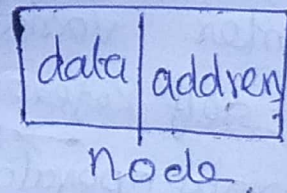 data addren
node